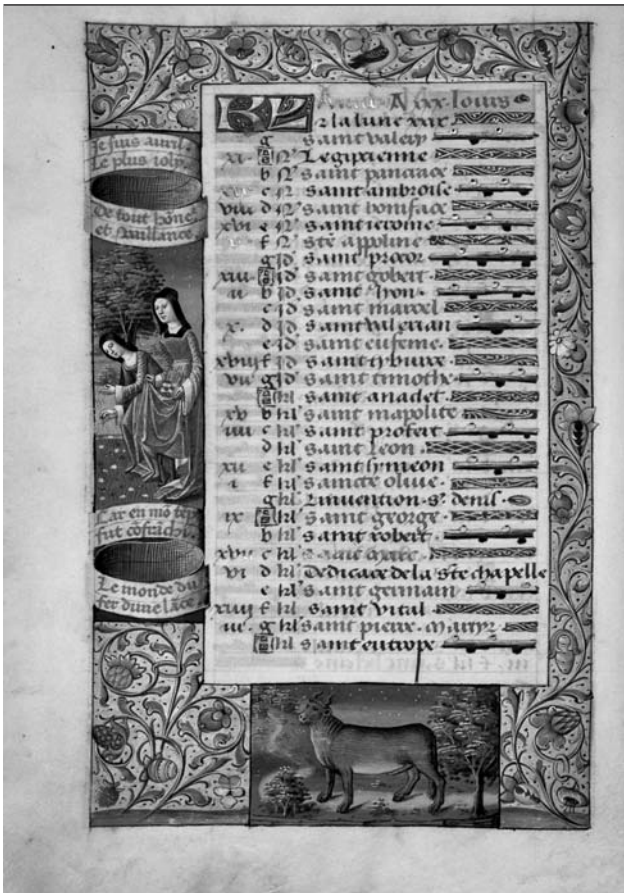 Je suis avril
Le plus ioly
De tout hõne
et vaillance
Car en mõ
fut
Le monde du
fer dune lãce
KL Auril A xxx Iours
la lune xxix
g saint valery
xi A N Legipcienne
b N saint pancace
c N saint ambroise
viii d N saint boniface
xvi e N saint ieroine
f N ste appoline
g id saint procor
xiii A id saint gobert
ii b id saint lyon
c id saint marcel
x d id saint valerian
e id saint eufeme
xviii f id saint tyburce
vii g id saint timothe
A kl saint anaclet
xv b kl saint mapolite
iiii c kl saint profert
d kl saint leon
xii e kl saint symeon
i f kl saincte olive
g kl Linvention st denis
ix A kl saint george
b kl saint robert
xvii c kl saint marc
vi d kl Dedicace de la ste chapelle
e kl saint germain
xiiii f kl saint vital
iii g kl saint pierre martyr
A kl saint eutrope